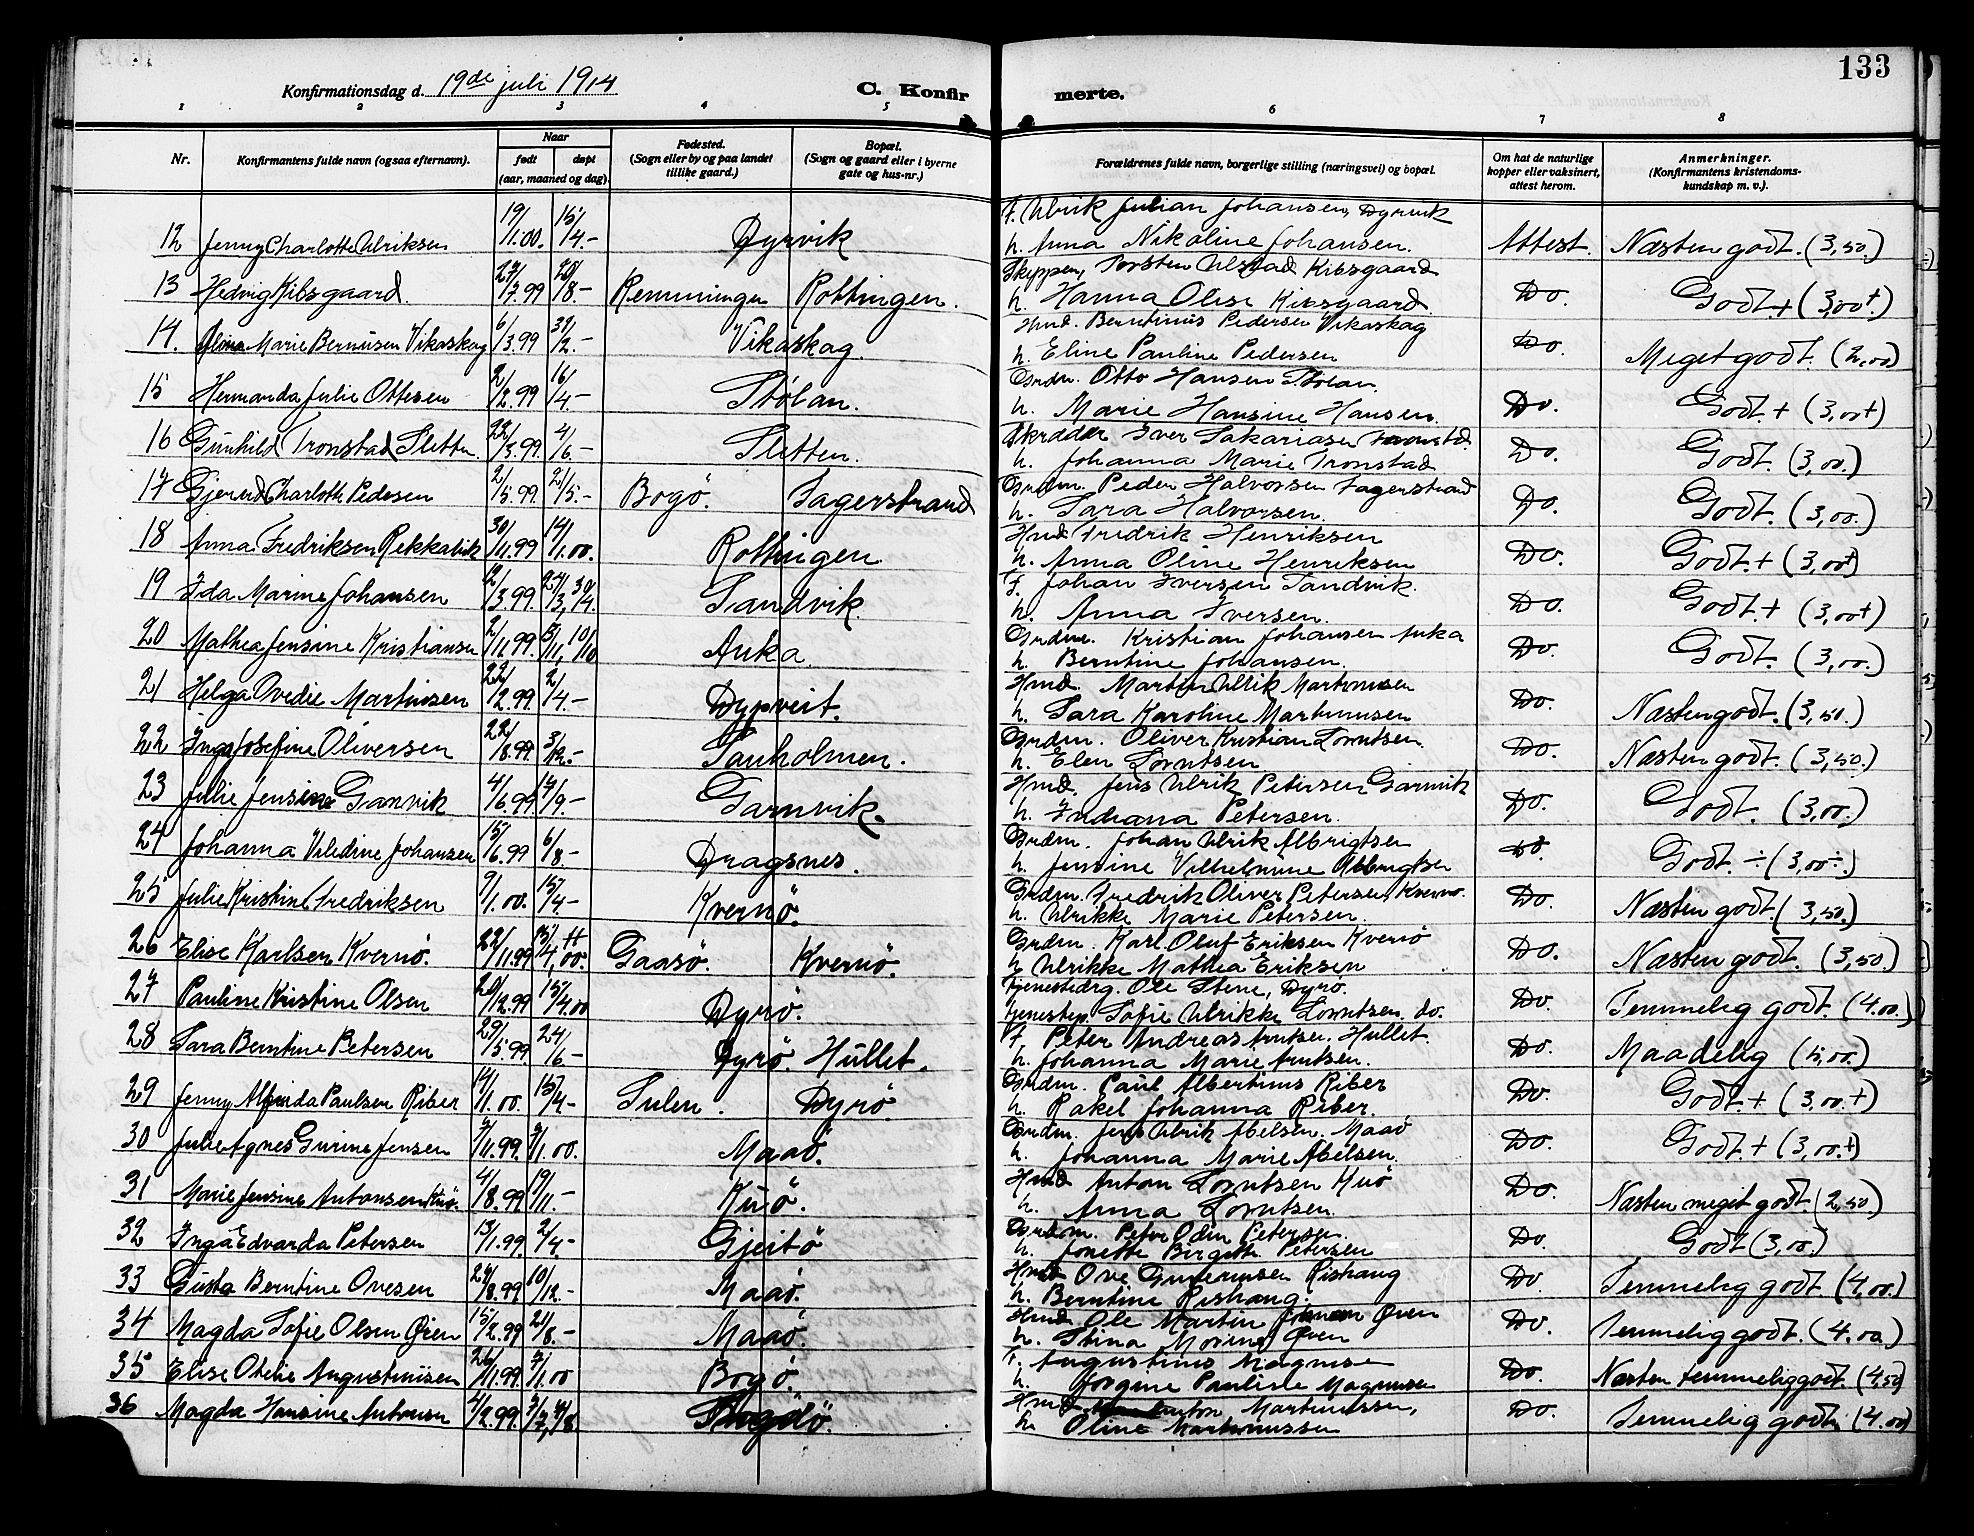 133
Konfirmationsdag d. 19de juli 1914 C. Konfirmerte.
1 2 3 4 5 6 7 8
Nr. Konfirmantens fulde navn (ogsaa efternavn). Naar født døpt (aar, maaned og dag). Fødested. (Sogn eller by og paa landet tillike gaard.) Bopæl. (Sogn og gaard eller i byerne gate og hus-nr.) Forældrenes fulde navn, borgerlige stilling (næringsvei) og bopæl. Om hat de naturlige kopper eller vaksinert, attest herom. Anmerkninger. (Konfirmantens kristendoms-kundskap m. v.).
F. Ulrik Julian Johansen, Dyrvik
12 Jenny Charlotte Ulriksen 19/1.00. 15/4.- Dyrvik h. Anna Nikoline Johansen. Attest. Næsten godt. (3,50.)
Skipper, Torsten Ulstad Kibsgaard
13 Hedvig Kibsgaard. 27/7.99 20/8.- Remmingen Rottingen. h. Hanna Olise Kibsgaard. Do. Godt + (3,00+)
Hmd. Berntinus Pedersen Vikaskag
14. Marie Berntsen Vikaskag 6/3.99 Vikaskag. h. Eline Pauline Pedersen Do. Meget godt. (2,00)
Grdm. Otto Hansen Stølan.
15 Hermanda Julie Ottesen 2/2.99 16/4.- Stølan. h. Marie Hansine Hansen. Do. Godt + (3,00+)
Skrædder Iver Sakariasen Tronstad
16 Gunhild Tronstad Sletten 23/3.99 4/6.- Sletten. h. Johanna Marie Tronstad Do. Godt. (3,00.)
Grdm. Peder Halvorsen Fagerstrand
17 Gjerd Charlotte Pedersen 2/5.99. 21/5.- Bogö. Fagerstrand h. Sara Halvorsen. Do. Godt. (3,00.)
Hmd Fredrik Henriksen
18 Anna Fredriksen Rekkabik 30/11.99 14/1.00. Rottingen h. Anna Oline Henriksen Do. Godt. + (3,00+)
F. Johan Iversen Sandvik.
19 Ida Marine Johansen 12/3.99. 27/3, 30/4. Sandvik. h. Anna Iversen. Do. Godt. + (3,00+)
Grdm. Kristian Johansen Auka
20 Mathea Jensine Kristiansen 2/11.99. Auka. h. Berntine Johansen. Do. Godt. (3,00.)
Hmd. Martin Ulrik Martinusen
21 Helga Ovedie Martinsen 22/2.99 2/4.- Dypveit. h. Sara Karoline Martinusen Do. Næsten godt. (3,50.)
Grdm. Oliver Kristian Lorntsen.
22 Inga Josefine Oliversen 22/8.99 3/12.- Sauholmen. h. Elen Lorntsen Do. Næsten godt. (3,50.)
Hmd. Jens Ulrik Petersen Garnvik
23 Julie Jensine Ganvik 4/6.99 17/9.- Garnvik. h. Indiana Petersen. Do. Godt. (3,00.)
Grdm. Johan Ulrik Albrigtsen
24 Johanna Viledine Johansen 15/6.99 6/8.- Dragsnes. h. Jensine Vilhelmine Albrigtsen Do. Godt. ÷ (3,00÷.)
Grdm. Fredrik Oliver Petersen, Kvernö.
25 Julie Kristine Fredriksen 9/1.00. 15/4.- Kvernö. h. Ulrikke Marie Petersen. Do. Næsten godt. (3,50.)
Grdm. Karl Oluf Eriksen Kvernö
26 Elise Karlsen Kvernö. 22/11.99 15/4,00. Gaasö. Kvernö. h. Ulrikke Mathea Eriksen Do. Næsten godt. (3,50.)
Tjenestedrg. Ole Stene, Dyrö.
27 Pauline Kristine Olsen 20/12.99 15/4.00 Dyrö. tjenestep. Sofie Ulrikke Lorntsen. do. Do. Temmelig godt. (4.00.)
F. Peter Andreas Arntsen. Hullet.
28 Sara Berntine Petersen 29/5.99 24/6- Dyrö. Hullet. h. Johanna Marie Arntsen. Do. Maadelig (5,00.)
Grdm. Paul Albertinus Riber
29 Jenny Alfinda Paulsen Riber 14/1.00. 15/4- Sulen. Dyrö h. Rakel Johanna Riber. Do. Godt. + (3,00.+)
Grdm. Jens Ulrik Abelsen. Maaö
30 Julie Agnes Gurine Jensen Maaö. h. Johanna Marie Abelsen. Do. Godt. + (3,00.+)
Hmd Anton Lorntsen Kuö
31 Marie Jensine Antonsen Kuö. 4/8.99 19/11.- Kuö. h. Anna Lorntsen. Do. Næsten meget godt. (2,50.)
Grdm. Peter Odin Petersen.
32 Inga Edvarda Petersen 13/1.99. 2/4- Gjeitö h. Jonette Birgitte Petersen Do. Godt (3,00.)
Hmd Ove Rishaug
33 Gusta Berntine Ovesen 24/8.99 10/12.- Maaö. h. Berntine Rishaug. Do Temmelig godt. (4,00.)
Hmd Ole Martin Øren
34 Magda Sofie Olsen Øren 15/2.99 21/8.- Maaö. h. Stina Øren Do. Temmelig godt. (4.00)
F. Augustinus Magnusen
35 Elise Otelie Augustinusen 26/11.99. 7/1.00 Bogö. h. Jorgine Pauline Magnusen Do. Næsten temmelig godt. (4,50)
Hmd Anton Martinussen,
36 Magda Hansine Antonsen h. Oline Martinussen Do. Temmelig godt. (4.00)